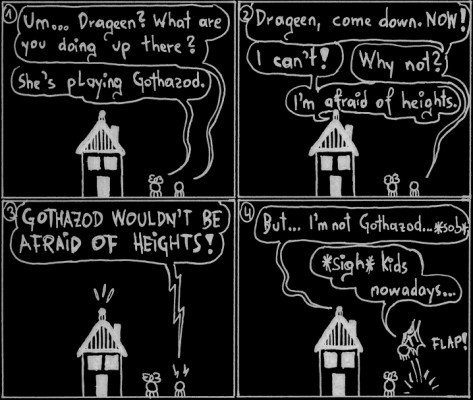 1
Um... Drageen? What are
you doing up there?
She's playing Gothazod.
2
Drageen, come down. NOW!
I can't!
Why not?
I'm afraid of heights.
3
GOTHAZOD WOULDN'T BE
AFRAID OF HEIGHTS!
4
But... I'm not Gothazod... *sob*
*Sigh* kids
nowadays...
FLAP!